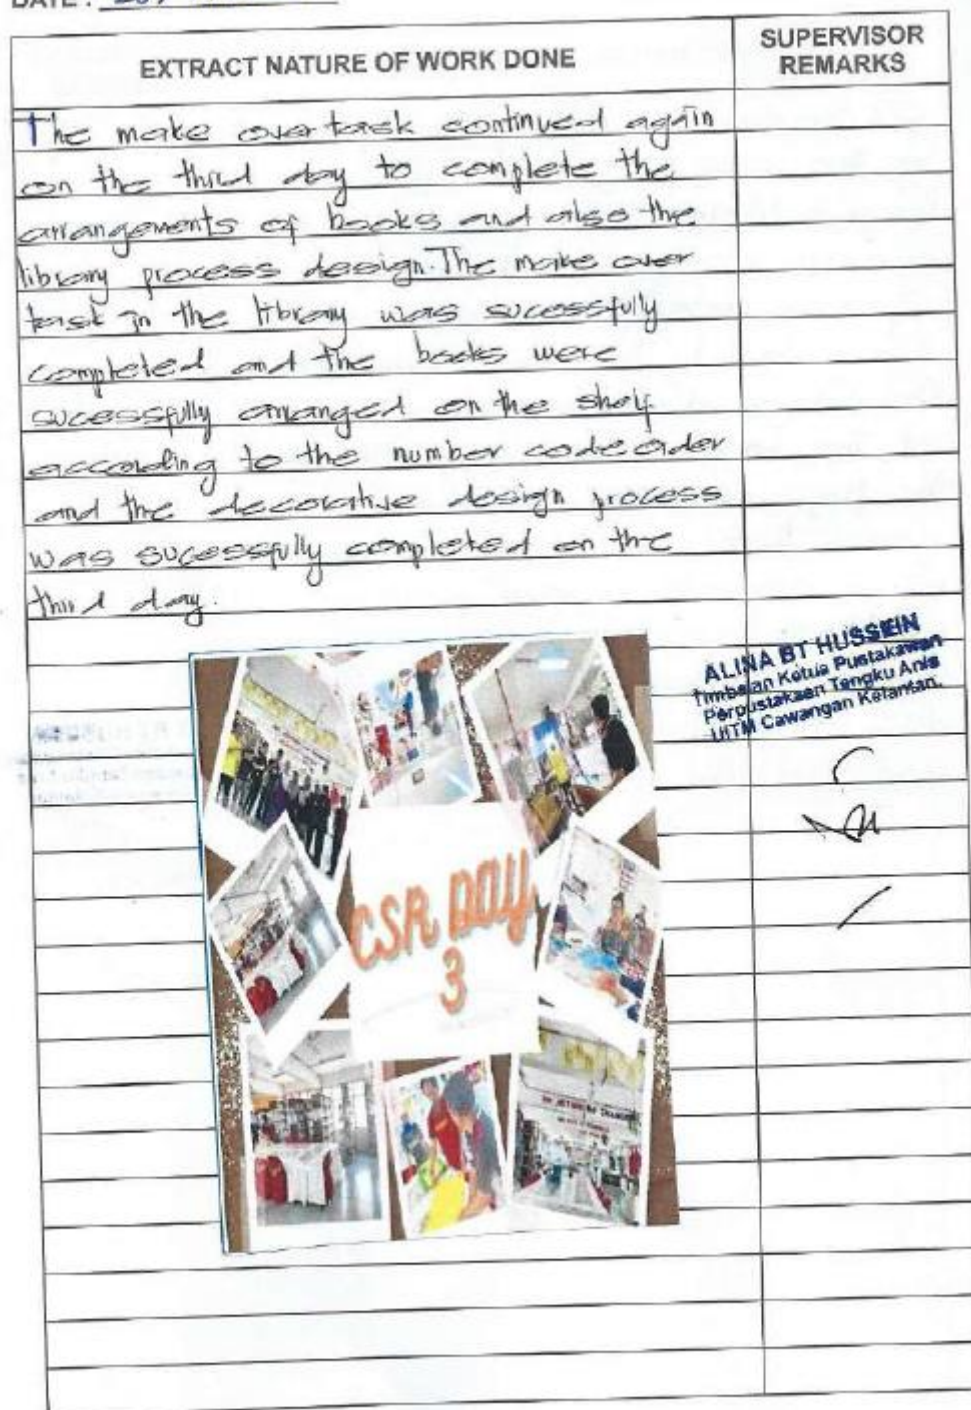 DATE :
EXTRACT NATURE OF WORK DONE
SUPERVISOR
REMARKS
The make over task continued again
on the third day to complete the
arrangements of books and also the
library process design. The make over
task in the library was sucessfully
completed and the books were
sucessfully arranged on the shelf
according to the number code order
and the decorative design process
was sucessfully completed on the
third day.
ALINA BT HUSSEIN
Timbalan Ketua Pustakawan
Perpustakaan Tengku Anis
UiTM Cawangan Kelantan.
CSR DAY
3